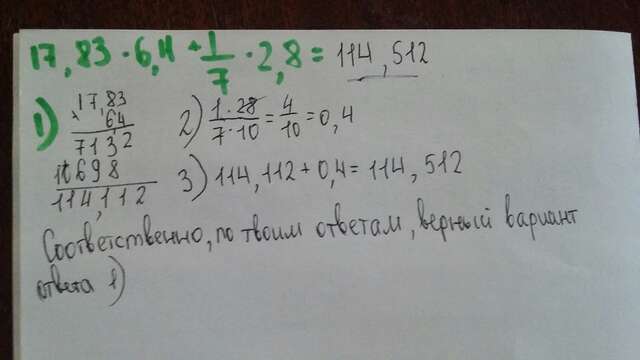 17,83 · 6,4 + 1/7 · 2,8 = 114,512
1) 17,83
× 6,4
7132
10698
114,112
2) 1·28/7·10 = 4/10 = 0,4
3) 114,112 + 0,4 = 114,512
Соответственно, по твоим ответам, верный вариант
ответа 1)